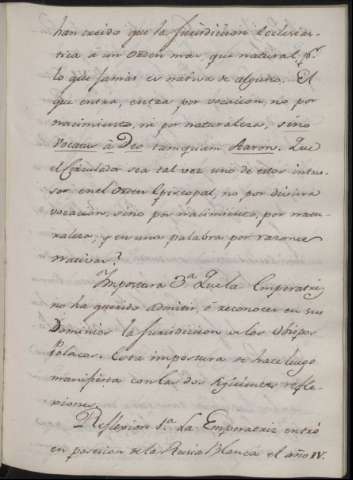 han creido que la jurisdiccion Eclesias-
tica à un orden mas que natural, pr.
lo que jamas es nativa de alguno. El
que entra, entra por vocacion, no por
nacimiento, ni por naturaleza, sino
Vocatus à Deo tamquam Aaron. Que
el Circulador sea tal vez uno de estos intru-
sos en el orden Episcopal, no por divina
vocacion, sino por nacimiento, por natu-
raleza, y en una palabra por razones
nativas?
Impostura 3.a Que la Emperatriz
no ha querido admitir, ó reconocer en sus
Dominios la jurisdiccion de los Obispos
Polacos. Esta impostura se hace luego
manifiesta con las dos siguientes refle-
xiones.
Reflexion 1.a La Emperatriz entró
en posesion de la Rusia Blanca el año IV.